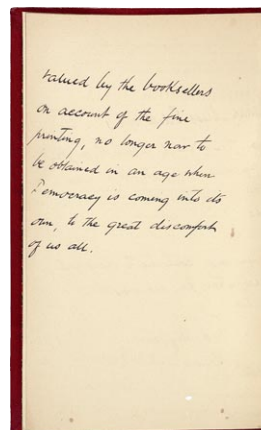 valued by the booksellers
on account of the fine
printing, no longer now to
be obtained in an age when
Democracy is coming into its
own, to the great discomfort
of us all.